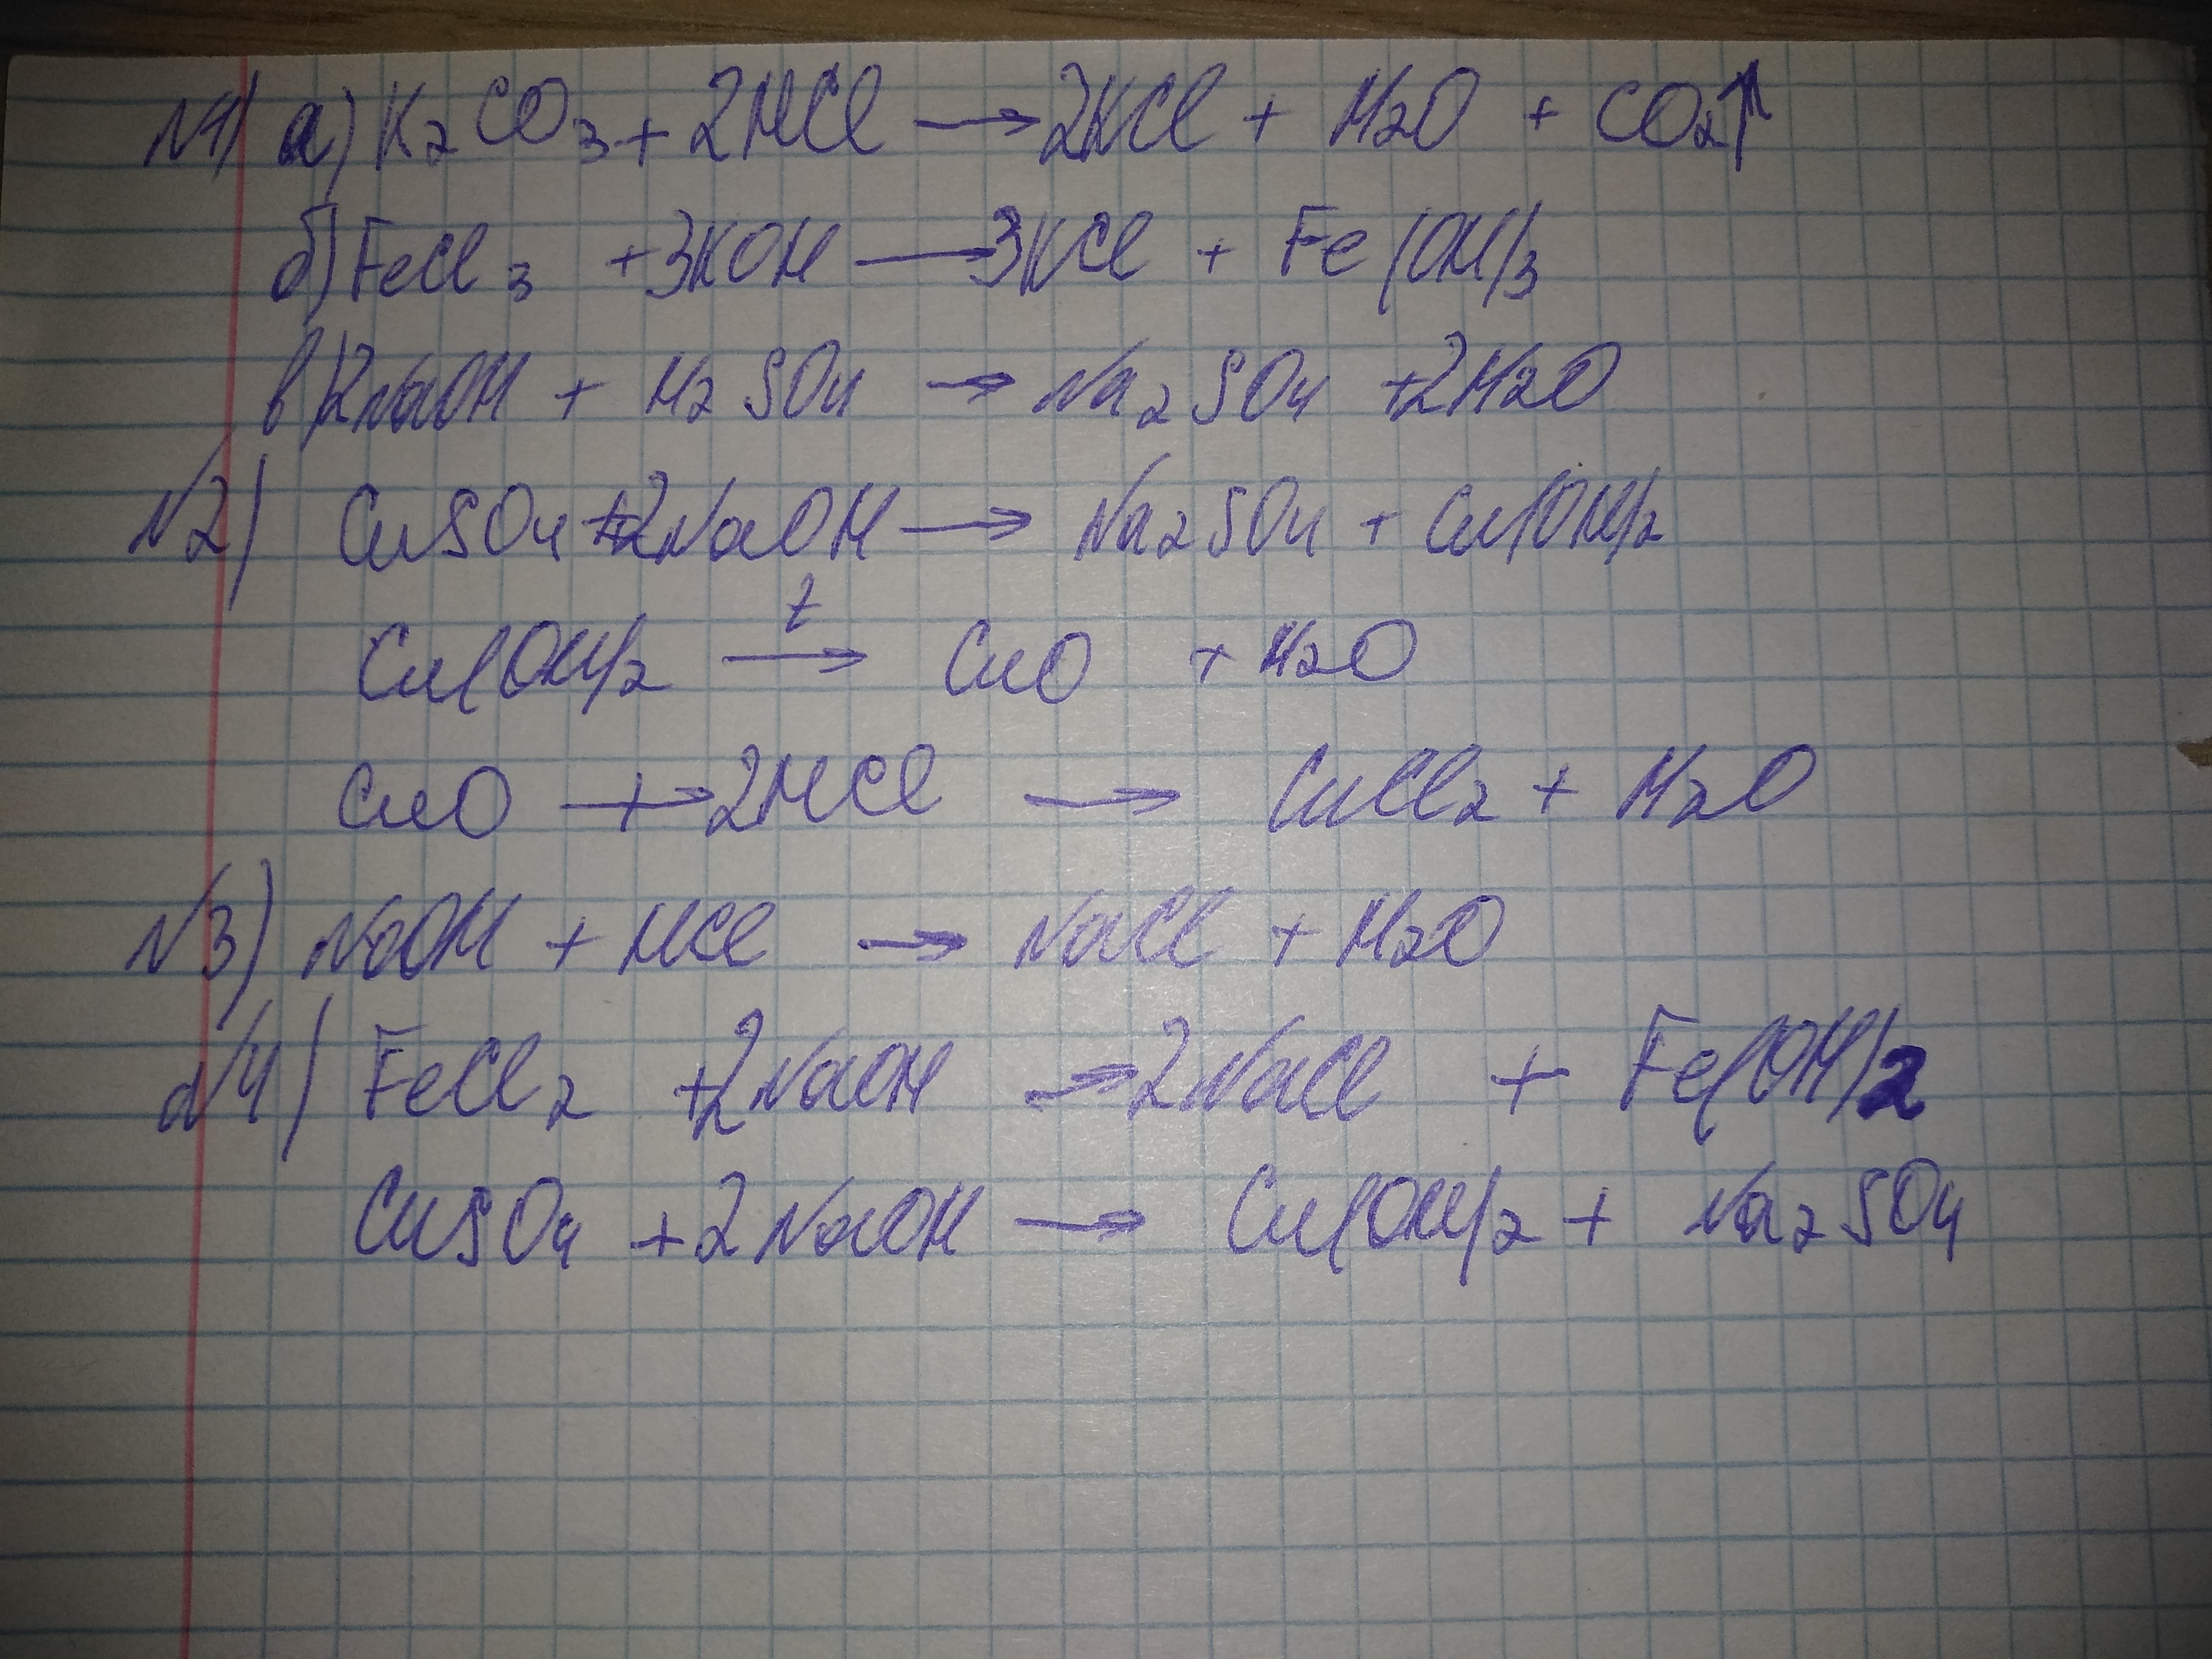 №1) а) K2CO3 + 2HCl → 2KCl + H2O + CO2↑
б) FeCl3 + 3KOH → 3KCl + Fe(OH)3
в) 2NaOH + H2SO4 → Na2SO4 + 2H2O
№2) CuSO4 + 2NaOH → Na2SO4 + Cu(OH)2
Cu(OH)2 t→ CuO + H2O
CuO + 2HCl → CuCl2 + H2O
№3) NaOH + HCl → NaCl + H2O
№4) FeCl2 + 2NaOH → 2NaCl + Fe(OH)2
CuSO4 + 2NaOH → Cu(OH)2 + Na2SO4